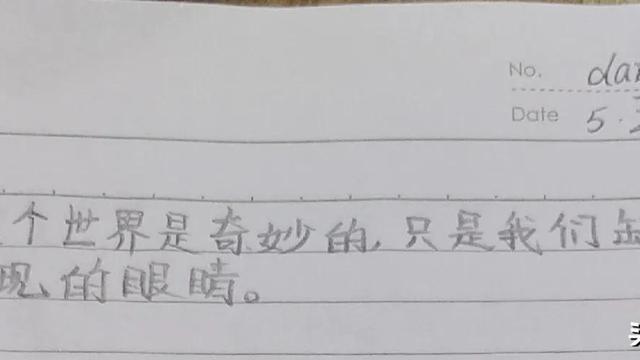 No. dan
Date 5.
个世界是奇妙的,只是我们缺
现的眼睛。